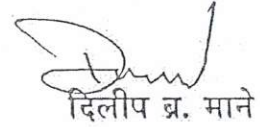 दिलीप ब्र. माने